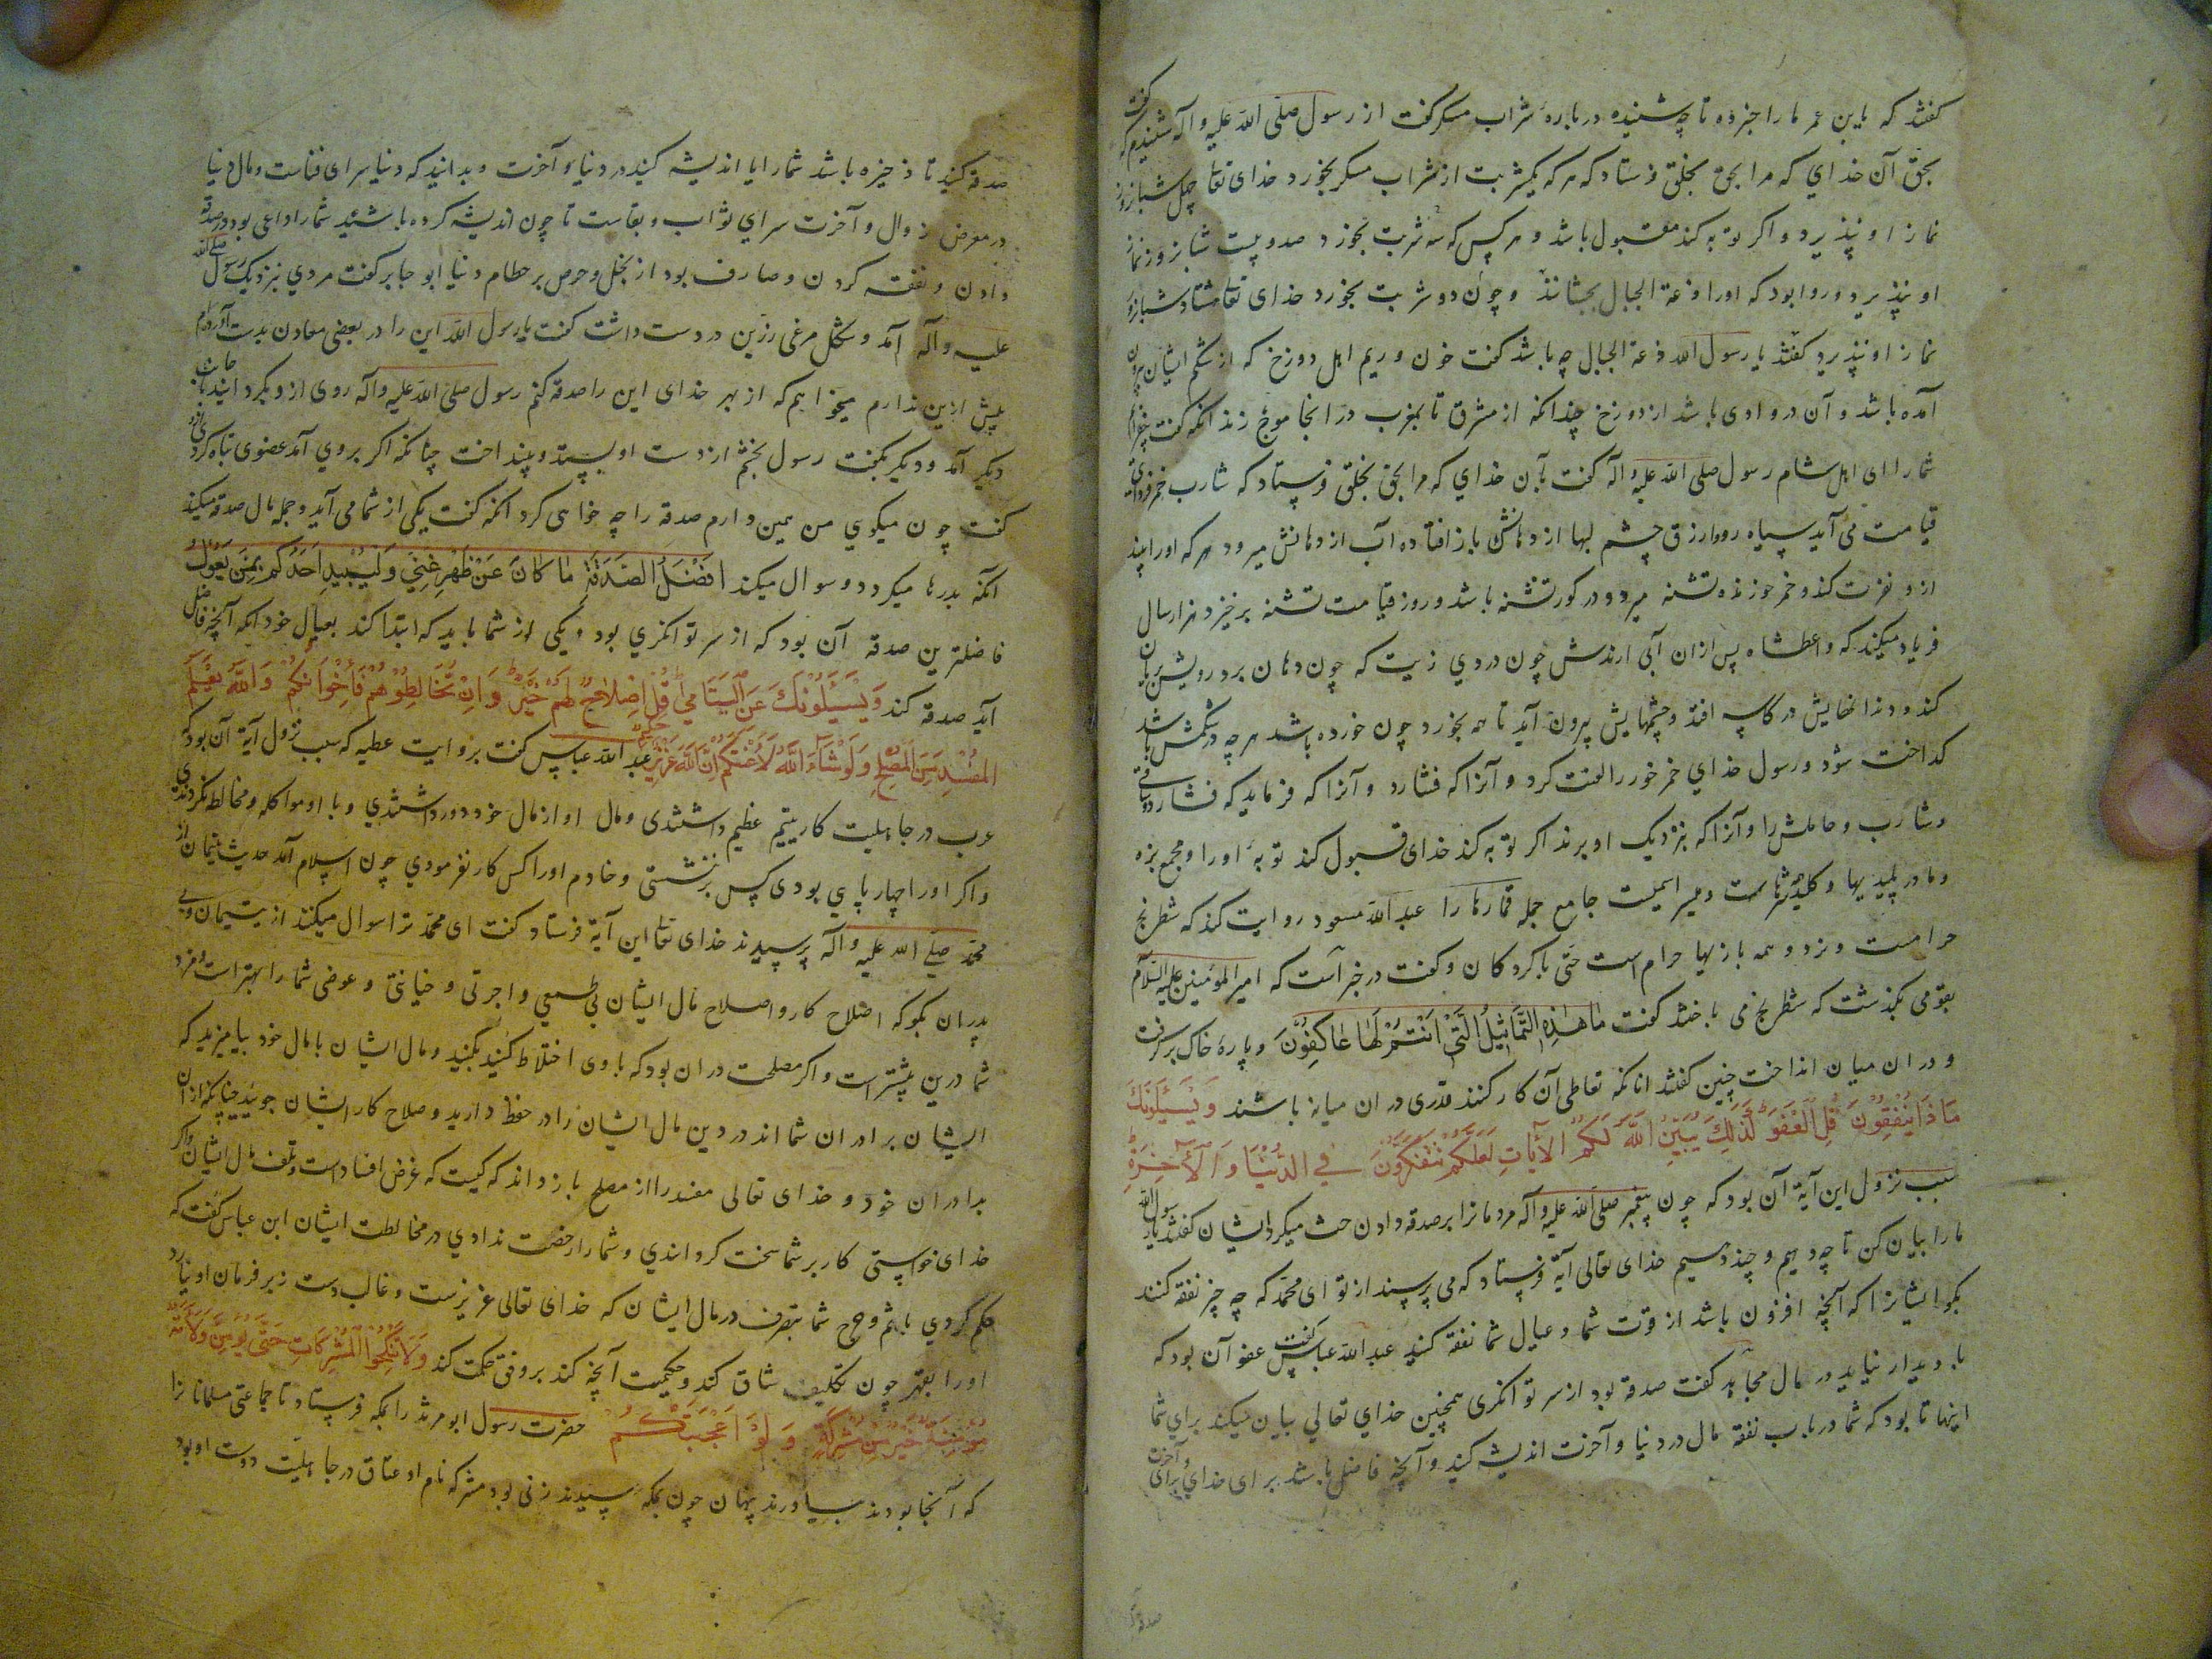 گفتند که یابن عمر ما را خبر ده تا چه شنیده درباره شراب مسکر گفت از رسول صلی الله علیه و آله شنیدم که گفت
بحق آن خدای که مرا بحق بخلق فرستاد که هر که یکشربت از شراب مسکر بخورد خدای تعا چهل شبانروز
نماز او نپذیرد و اگر توبه کند مقبول باشد و هر کس که سه شربت بخورد صد و بیست شبانروز نماز
او نپذیرد و روا بود که او را از غة الجبال بچشانند و چون دو شربت بخورد خدای تعا هشتاد شبانروز
نماز او نپذیرد گفتند یا رسول الله غة الجبال چه باشد گفت خون و ریم اهل دوزخ که از شکم ایشان بیرون
آمده باشد و آن در وادی باشد از دوزخ چندانکه از مشرق تا بمغرب در انجا موج زند آنکه گفت
شما را ای اهل شام رسول صلی الله علیه و آله گفت بآن خدای که مرا بحق بخلق فرستاد که شارب خمر فردای
قیامت می آید سیاه رو و ازرق چشم لبها از دهانش باز افتاده آب از دهانش میرود هر که او را بیند
ازو نفرت کند و خمر خورنده تشنه میرد و در گور تشنه باشد و روز قیامت تشنه برخیزد هزار سال
فریاد میکند که واعطشاه پس ازان آبی آرندش چون دردی زیت که چون دهان برد رویش بریان
کند و دندانهایش در کاسه افتد و چشمهایش بیرون آید تا همه بخورد چون خورده باشد هر چه در شکمش باشد
گداخت شود و رسول خدای خمر خور را لعنت کرد و آنرا که فشارد و آنرا که فرماید که فشارد و ساقی
و شارب و حاملش را و آنرا که بنزدیک او برند اگر توبه کند خدای قبول کند توبه او را و مجمع بزه
و مادر پلیدیها و کلید شرهاست و میسر اسمیست جامع جمله قمارها را عبد الله مسعود روایت کند که شطرنج
حرامست و نرد و همه بازیها حرام است حتی با کردکان و گفت در خبر است که امیر المومنین علیه السلام
بقومی بگذشت که شطرنج می باختند گفت ما هذه التماثیل التی انتم لها عاکفون و پاره خاک برگرفت
و در ان میان انداخت چنین گفتند آنانکه تعاطی آن کار کنند قدری در ان میانه باشند وَیَسْئَلُونَكَ
مَاذَا یُنْفِقُونَ قُلِ الْعَفْوَ كَذٰلِكَ یُبَیِّنُ اللّٰهُ لَكُمُ الْاٰیَاتِ لَعَلَّكُمْ تَتَفَكَّرُونَ فِی الدُّنْیَا وَالْاٰخِرَةِ
سبب نزول این آیة آن بود که چون پیغمبر صلی الله علیه و آله مردمانرا بر صدقه دادن حث میکرد ایشان گفتند یا رسول الله
ما را بیان کن تا چه دهیم و چند دهیم خدای تعالی آیة فرستاد که می پرسند از تو ای محمد که چه چیز نفقه کنند
بگو ایشانرا که آنچه افزون باشد از قوت شما و عیال شما نفقه کنید عبد الله عباس گفت عفو آن بود که
با دیدار نیاید در مال مجاهد گفت صدقه بود از سر توانگری همچنین خدای تعالی بیان میکند برای شما
اینها تا بود که شما در باب نفقه مال در دنیا و آخرت اندیشه کنید و آنچه فاضل باشد برای خدای و برای آخرت
صدقه
صدقه کنید تا ذخیره باشد شما را یا اندیشه کنید در دنیا و آخرت و بدانید که دنیا سرای فناست و مال دنیا
در معرض زوال و آخرت سرای ثواب و بقاست تا چون اندیشه کرده باشید شما را داعی بود در صدقه
دادن و نفقه کردن و صارف بود از بخل و حرص بر حطام دنیا ابو جابر گفت مردی بنزدیک رسول صلی الله
علیه و آله آمد و بشکل مرغی زرین در دست داشت گفت یا رسول الله این را در بعضی معادن بدست آورده‌ام
بیش ازین ندارم میخواهم که از بهر خدای این را صدقه کنم رسول صلی الله علیه و آله روی ازو بگردانید باز جانب
دیگر آمد و دیگر بگفت رسول بخشم از دست او بستد و بینداخت چنانکه اگر بر وی آمد عضوی تباه کردی
گفت چون میگوی من همین دارم صدقه را چه خواهی کرد آنکه گفت یکی از شما می آید و جمله مال صدقه میکند
آنکه بدرها میگردد و سوال میکند افضل الصدقة ما کان عن ظهر غنی و لیبد احدکم بمن یعول
فاضلترین صدقه آن بود که از سر توانگری بود و یکی از شما باید که ابتدا کند بعیال خود آنکه آنچه فاضل
آید صدقه کند وَیَسْئَلُونَكَ عَنِ الْیَتَامٰی قُلْ اِصْلَاحٌ لَهُمْ خَیْرٌ وَاِنْ تُخَالِطُوهُمْ فَاِخْوَانُكُمْ وَاللّٰهُ یَعْلَمُ
الْمُفْسِدَ مِنَ الْمُصْلِحِ وَلَوْ شَاءَ اللّٰهُ لَاَعْنَتَكُمْ اِنَّ اللّٰهَ عَزِیزٌ حَكِیمٌ عبد الله عباس گفت بروایت عطیه که سبب نزول آیة آن بود که
عرب در جاهلیت کار یتیم عظیم داشتندی و مال او از مال خود دور داشتندی و با او مواکله و مخالطه نکردندی
و اگر او را چهارپای بودی کس بر ننشستی و خادم او را کس کار نفرمودی چون اسلام آمد حدیث یتیمان از
محمد صلی الله علیه و آله پرسیدند خدای تعا این آیة فرستاد گفت ای محمد ترا سوال میکنند از یتیمان و بی
پدران بگو که اصلاح کار و اصلاح مال ایشان بی طمعی و اجرتی و خیانتی و عوضی شما را بهتر است و مزد
شما درین بیشتر است و اگر مصلحت در ان بود که با وی اختلاط کنید بکنید و مال ایشان با مال خود بیامیزید که
ایشان برادران شما اند در دین مال ایشان را در حفظ دارید و صلاح کار ایشان جویید چنانکه از ان
برادران خود و خدای تعالی مفسد را از مصلح باز داند که کیست که غرض افساد است و تلف مال ایشان و اگر
خدای خواستی کار بر شما سخت گردانیدی و شما را رخصت ندادی در مخالطت ایشان ابن عباس گفت که
حکم کردی باثم و حرج شما بتصرف در مال ایشان که خدای تعالی عزیزست و غالب دست زبر فرمان او نیارد
او را بقهر چون تکلیف شاق کند و حکیمست آنچه کند بر وفق حکمت کند وَلَا تَنْكِحُوا الْمُشْرِكَاتِ حَتّٰی یُؤْمِنَّ وَلَاَمَةٌ
مُؤْمِنَةٌ خَیْرٌ مِنْ مُشْرِكَةٍ وَلَوْ اَعْجَبَتْكُمْ حضرت رسول ابو مرثد را بمکه فرستاد تا جماعتی مسلمانانرا
که آنجا بودند بیاورند پنهان چون بمکه رسیدند زنی بود مشرکه نام او عناق در جاهلیت دوست او بود